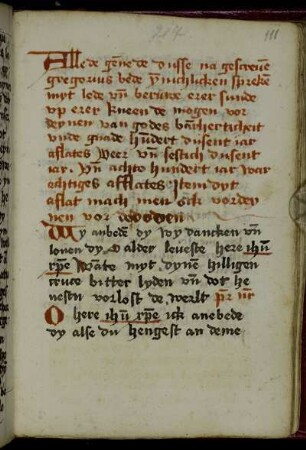 111
Alle de gene de dusse na gescreuē
gregorius bede ynnichlicken spreken
myt lede vn̄ beruwe erer sunde
vp erer kneen de mogen vor
deynen van godes barḿherticheit
vnde gnade hundert dusent iar
aflates Veer vn̄ sestich dusent
iar. Vn̄ achte hundert iar war
achtiges afflates. Item dyt
aflat mach men ock vorde
nen vor de doden
Wy anbedē dy wy dancken vn̄
louen dy O alder leueste here ih̄u
xp̄e wāte myt dynē hilligen
cruce bitter lyden vn̄ dot he
uestu vorlost de werlt pr̄ nr̄
O here ih̄u xp̄e ick anebede
dy alse du hengest an deme